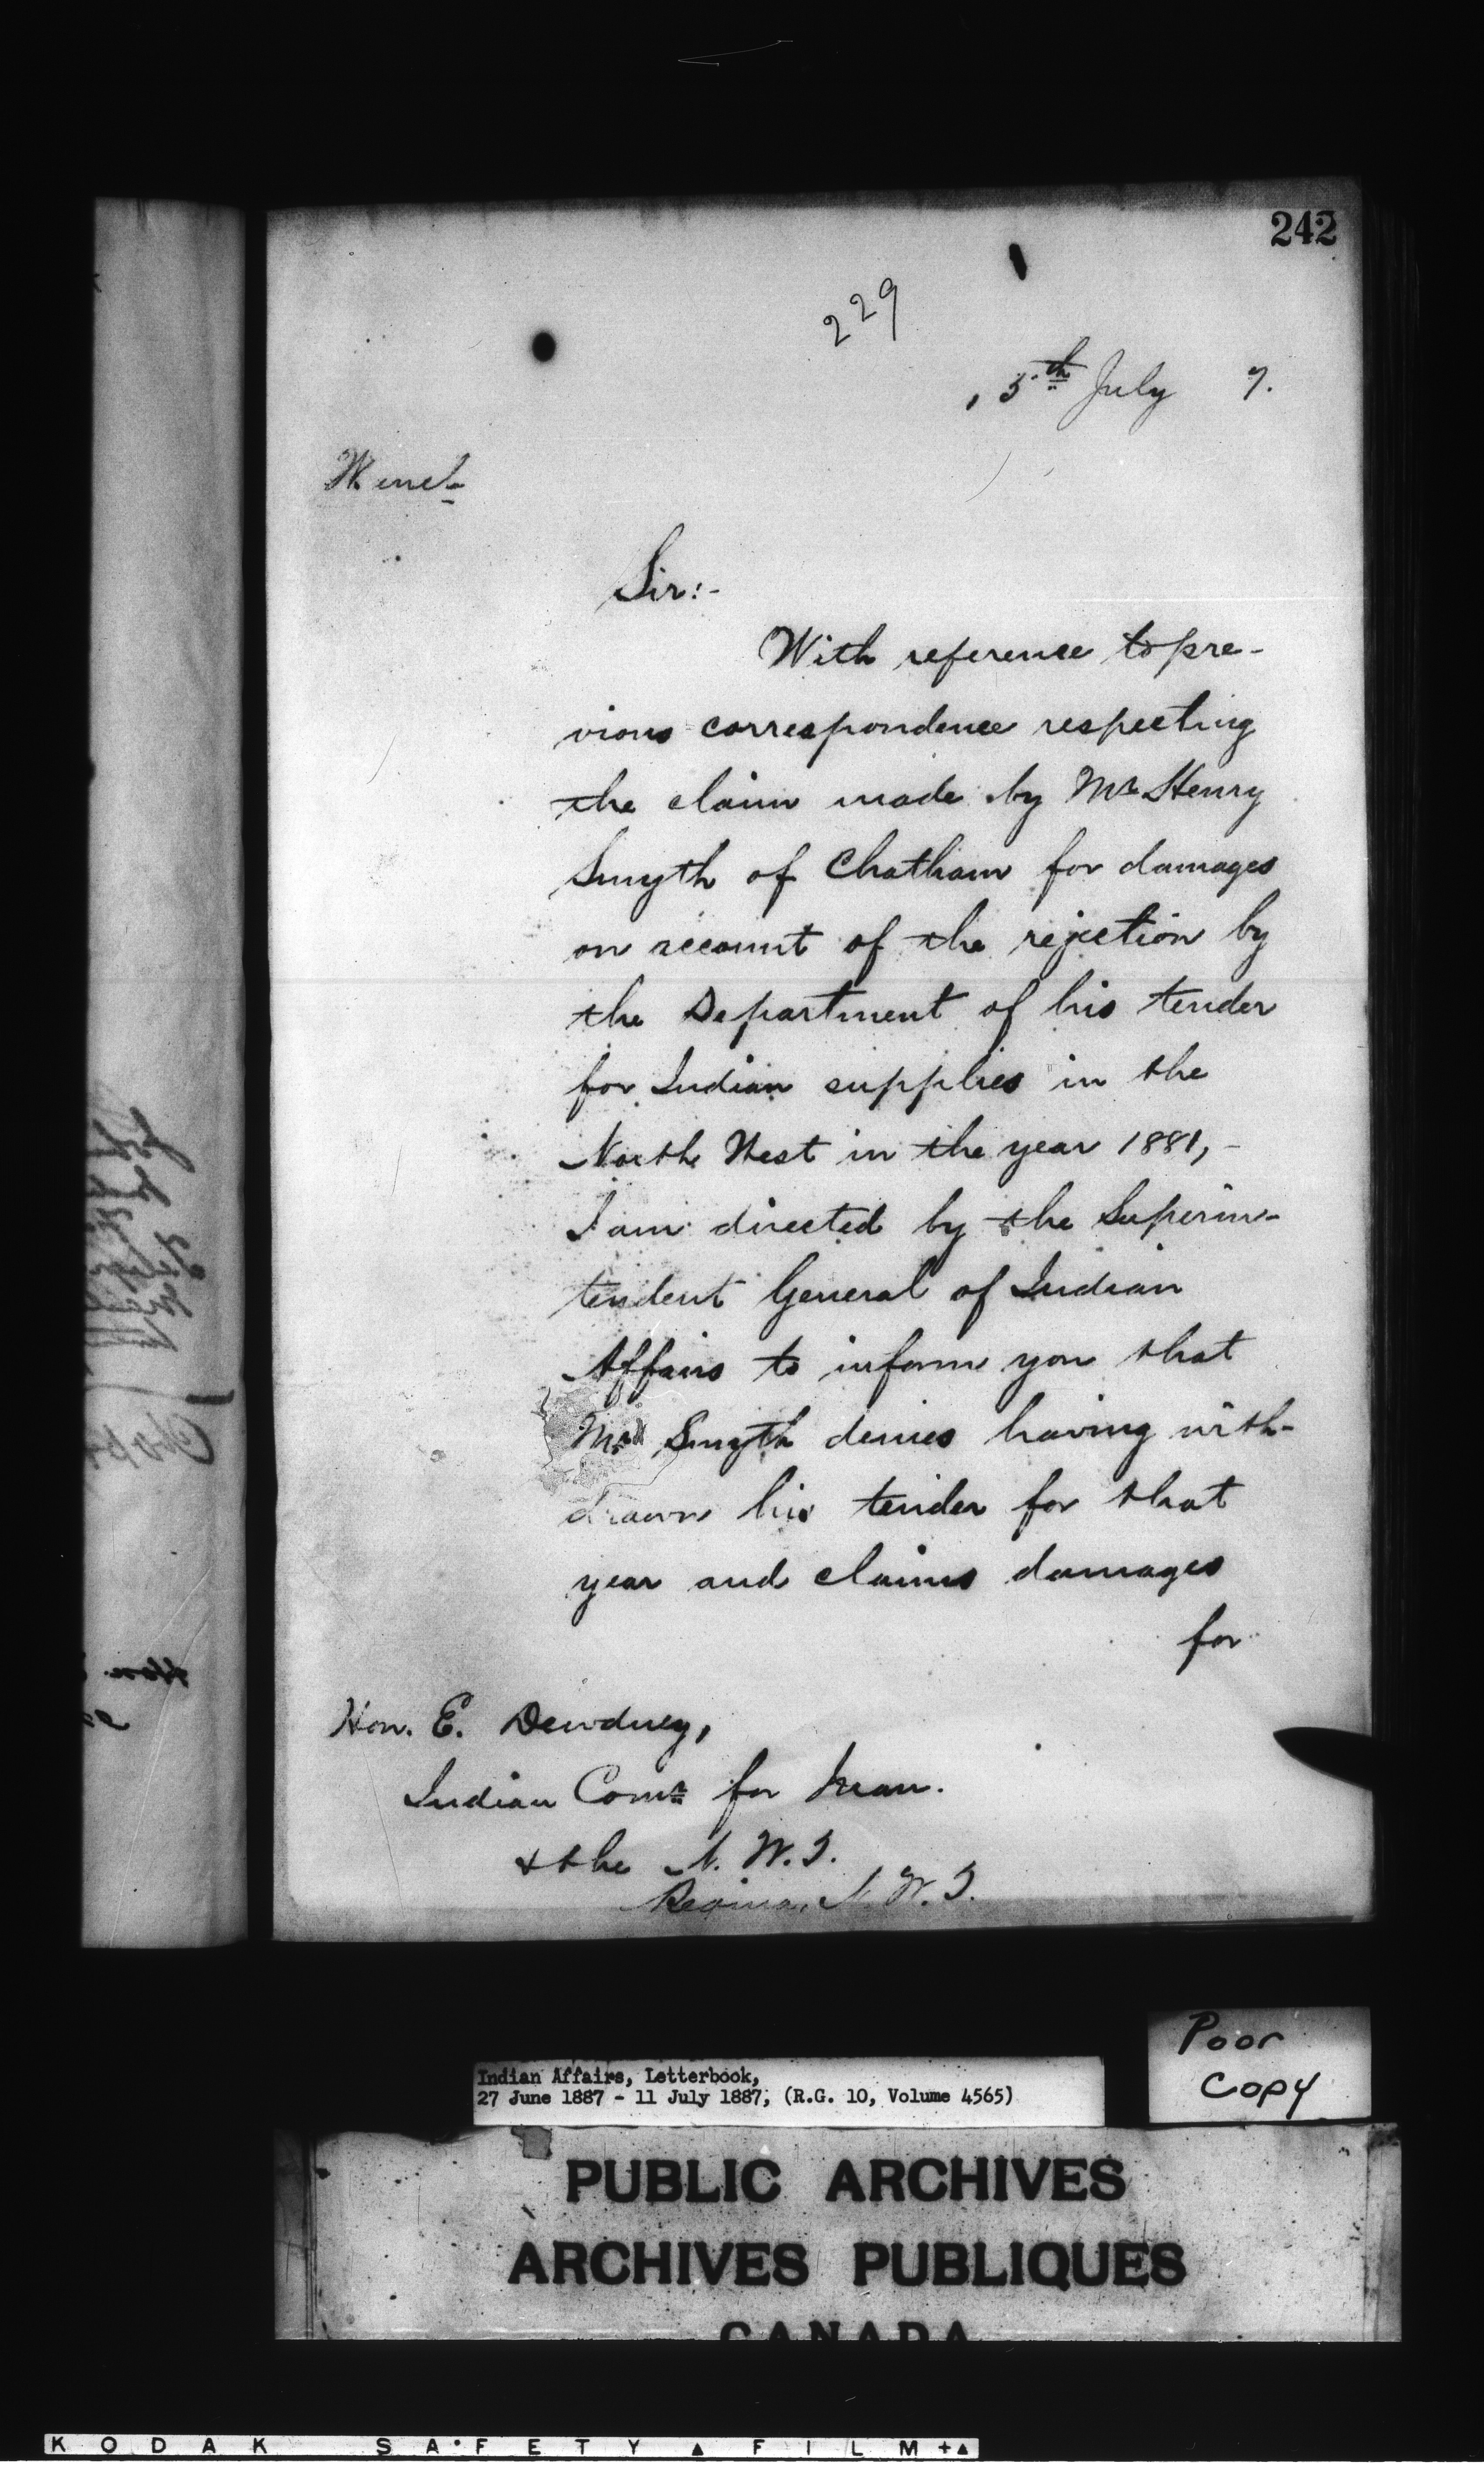 242
229
5th July 7.
W. encl.
Sir:-
With reference to pre-
vious correspondence respecting
the claim made by Mr Henry
Smyth of Chatham for damages
on account of the rejection by
the Department of his tender
for Indian supplies in the
North West in the year 1881,-
I am directed by the Superin-
tendent General of Indian
Affairs to inform you that
Mr Smyth denies having with-
drawn his tender for that
year and claims damages
for
Hon. E. Dewdney,
Indian Comr for Man.
& the N. W. T.
Regina, N. W. T.
Poor
Copy
Indian Affairs, Letterbook,
27 June 1887 - 11 July 1887, (R.G. 10, Volume 4565)
PUBLIC ARCHIVES
ARCHIVES PUBLIQUES
CANADA
KODAK SAFETY FILM